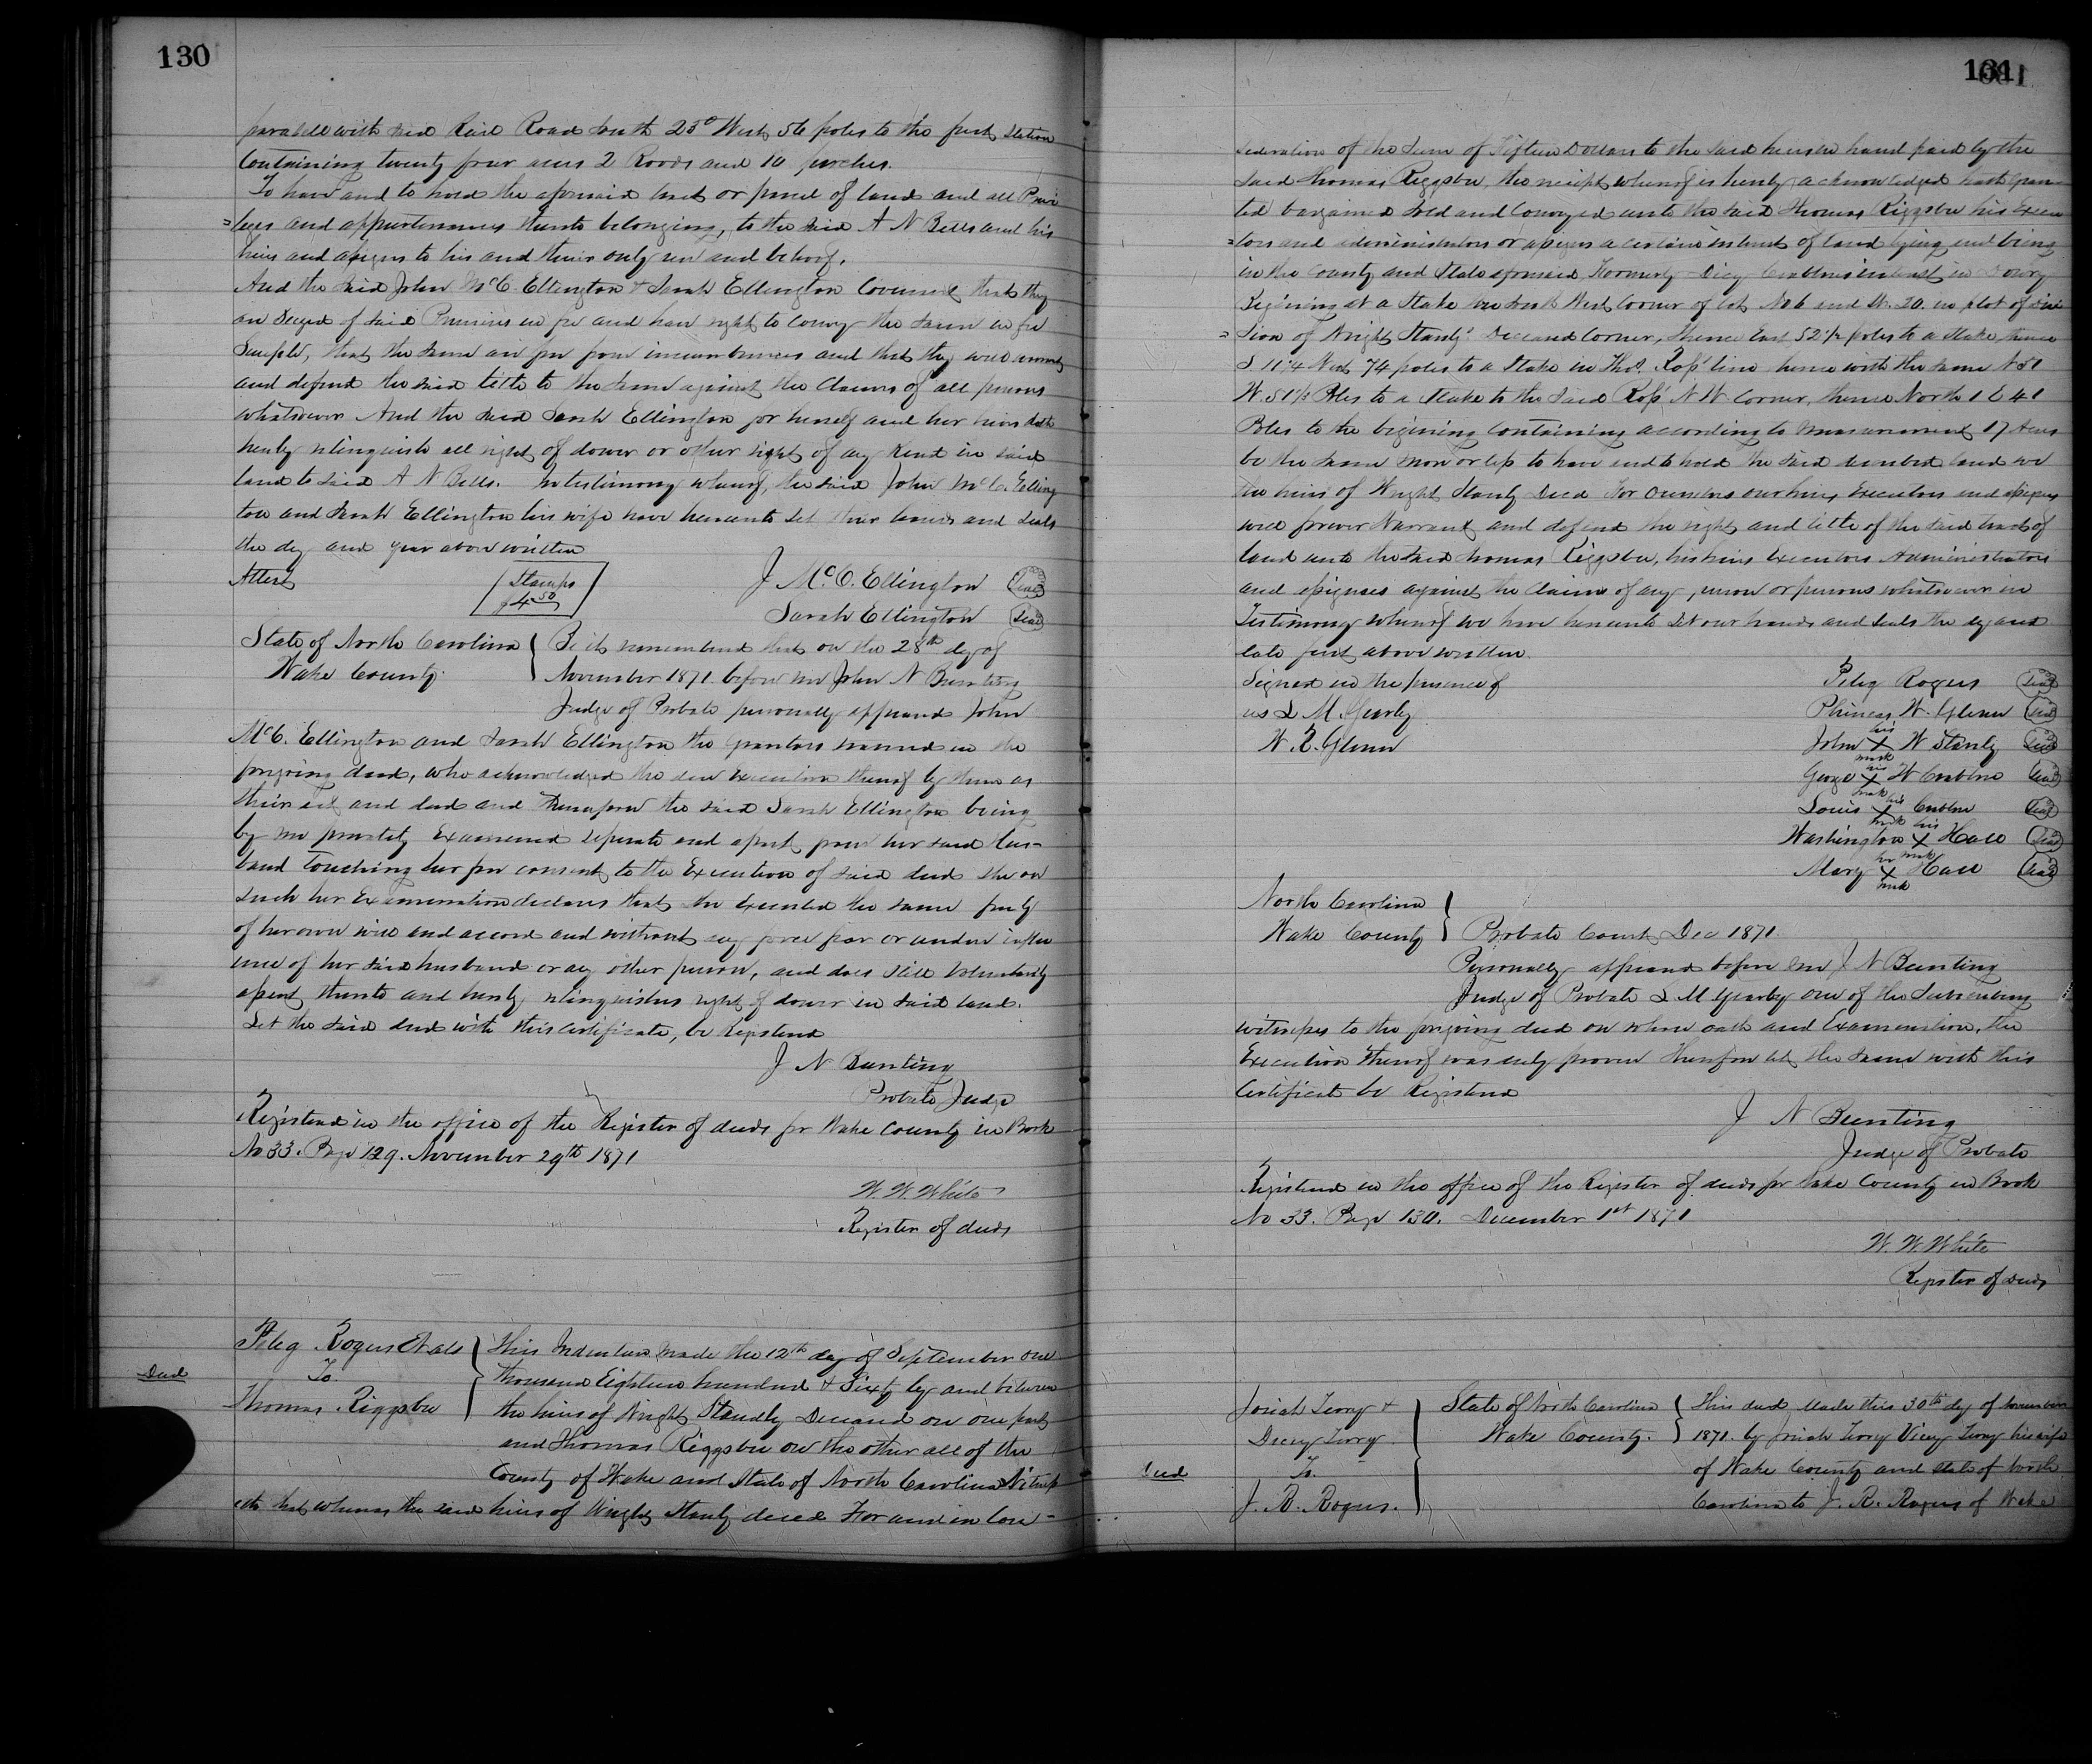 130
parallel with said Rail Road South 25° West 56 poles to the first Station
Containing twenty four acres 2 Roods and 10 perches.
To have and to hold the aforesaid tract or parcel of land and all Privi
=leges and appurtenances thereto belonging, to the said A N Betts and his
heirs and assigns to his and theirs only use and behoof.
And the said John McC. Ellington & Sarah Ellington Covenant that they
are Seized of said Premises in fee and have right to Convey the same in fee
Simple, that the same are free from incumbrances and that they will warrant
and defend the said title to the same against the Claims of all persons
whatsoever And the said Sarah Ellington for herself and her heirs doth
hereby relinquish all right of dower or other right of any kind in said
land to said A N Betts. In testimony whereof, the said John McC. Elling
ton and Sarah Ellington his wife have hereunto Set their hands and Seals
the day and year above written
Attest
Stamps
$4 50
J McC. Ellington Seal
Sarah Ellington Seal
State of North Carolina } Be it remembered that on the 28th day of
Wake County. November 1871 before me John N Bunting
Judge of Probate personally appeared John
McC. Ellington and Sarah Ellington the grantors named in the
foregoing deed, who acknowledged the due Execution thereof by them as
their act and deed and thereupon the said Sarah Ellington being
by me privately Examined separate and apart from her said Hus-
band touching her free consent to the Execution of said deed she on
such her Examination declares that she executed the same freely
of her own will and accord and without any force fear or undue influ
ence of her said husband or any other person, and does still voluntarily
assent thereto and hereby relinquishes right of dower in said land.
Let the said deed with this Certificate, be Registered
J N Bunting
Probate Judge
Registered in the office of the Register of deeds for Wake County in Book
No 33. Page 129. November 29th 1871
W. W. White
Register of deeds
Deed
Peleg Rogers Et als } This Indenture made the 12th day of September one
To thousand Eighteen hundred & Sixty by and between
Thomas Riggsbee the heirs of Wright Standly Deceased on one part
and Thomas Riggsbee on the other all of the
County of Wake and State of North Carolina Witness
eth that whereas the said heirs of Wright Stanly deced For and in Con-
131
sideration of the Sum of Fifteen Dollars to the said heirs in hand paid by the
said Thomas Riggsbee, the receipt whereof is hereby acknowledged hath Gran
ted bargained Sold and Conveyed unto the said Thomas Riggsbee his Execu
=tors and administrators or assigns a certain interest of land lying and being
in the County and State aforesaid Formerly Dicy interest in Dowry
Begining at a Stake the South West Corner of Lot No 6 and No. 20. in plot of Divi
=sion of Wright Stanly's Deceased Corner, thence East 52 1/2 poles to a Stake, thence
S 11 1/4 West 74 poles to a Stake in Thos. Ross' line thence with the same N 51
W. 51 1/2 Poles to a Stake to the said Ross' N W. Corner, thence North 1 E 41
Poles to the begining Containing according to Measurement 17 Acres
be the same more or less to have and to hold the said described land we
the heirs of Wright Stanly Decd For Ourselves our heirs, Executors and assigns
will forever Warrant and defend the right and title of the said tract of
land unto the said Thomas Riggsbee, his heirs Executors Administrators
and assignees against the Claims of any person or persons whatsoever in
Testimony whereof we have hereunto Set our hands and Seals the day and
date first above written
Signed in the presence of
us L M. Yearby
W. R. Glenn
Peleg Rogers Seal
Phineas W. Glenn Seal
John his X mark W Stanly Seal
George his X mark W Crabtree Seal
Louis his X mark Crabtree Seal
Washington his X mark Hall Seal
Mary her X mark Hall Seal
North Carolina }
Wake County } Probate Court, Dec 1871.
Personally appeared before me J N Bunting
Judge of Probate L M Yearby one of the Subscribing
witnesses to the foregoing deed on whose oath and Examination, the
Execution thereof was duly proven therefore let the same with this
Certificate be Registered
J N Bunting
Judge of Probate
Registered in the office of the Register of deeds for Wake County in Book
No 33. Page 130. December 1st 1871
W. W. White
Register of Deeds
Deed
Josiah Terry & } State of North Carolina } This deed Made this 30th day of November
Dicey Terry Wake County. 1871. by Josiah Terry Vicey Terry his wife
To of Wake County and State of North
J. R. Rogers. Carolina to J. R. Rogers of Wake